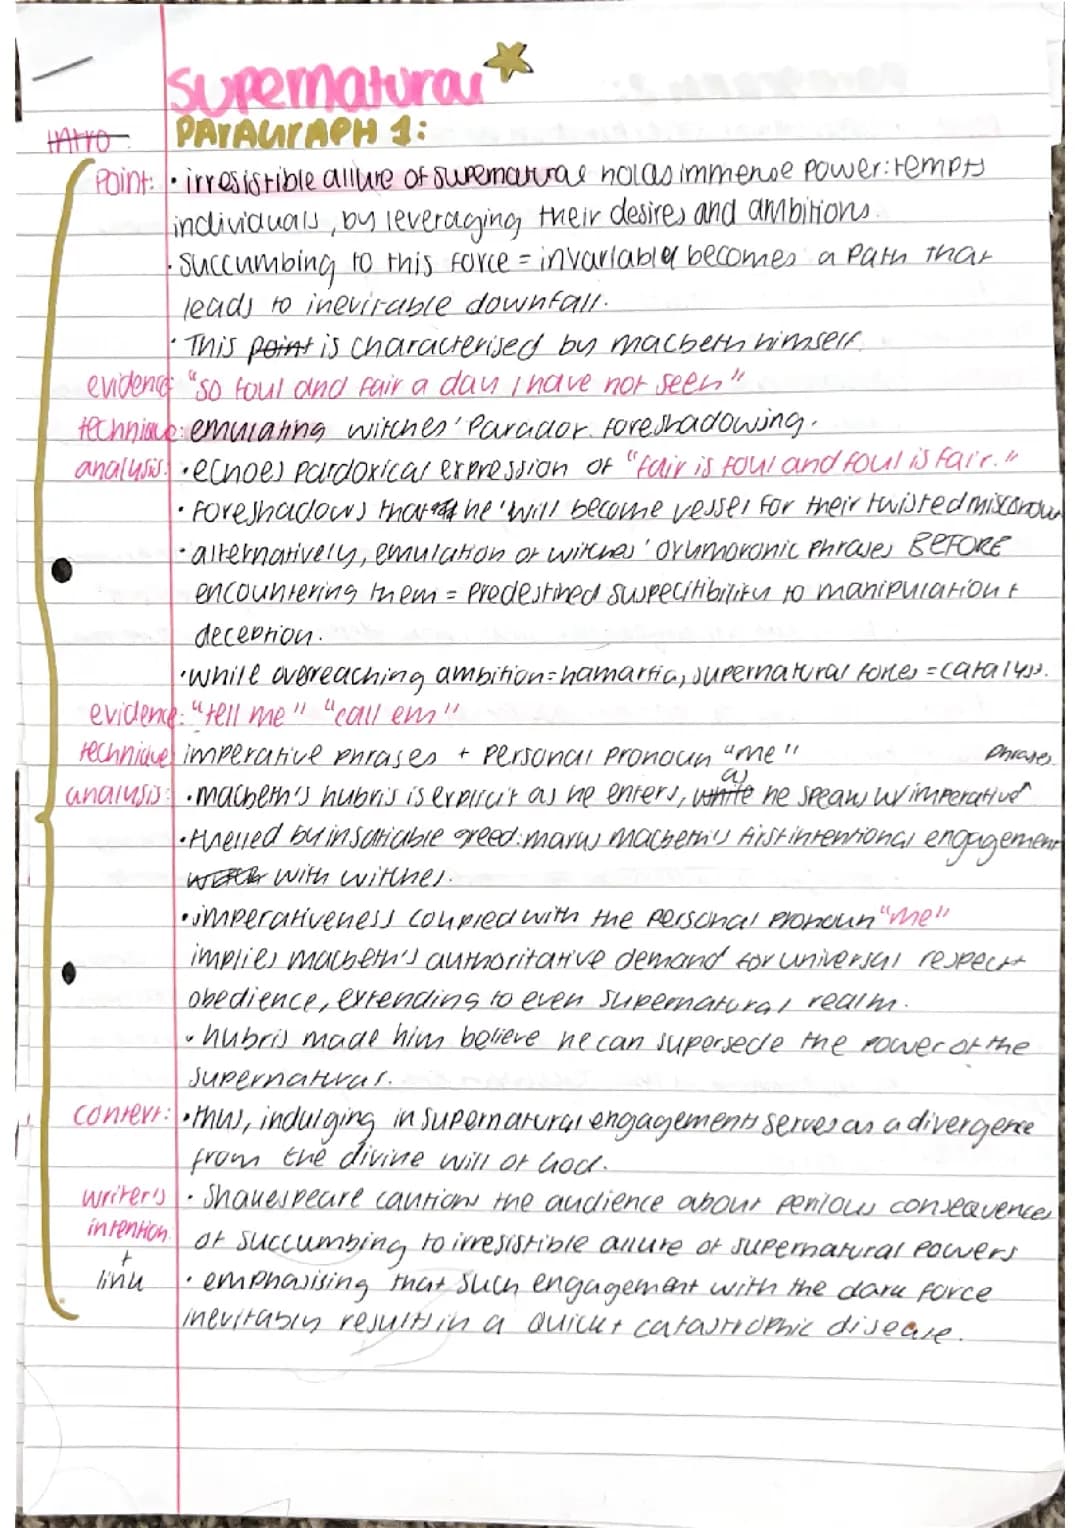 Supernatural
Intro:
PARAGRAPH 1:
Point: • irresistible allure of supernatural holds immense power: tempts
individuals, by leveraging their desires and ambitions.
• Succumbing to this force = invariably becomes a path that
leads to inevitable downfall.
• This point is characterised by macbeth himself.
evidence: "so foul and fair a day I have not seen"
technique: emulating witches' Parador. foreshadowing.
analysis: • echoes pardoxical expression of "fair is foul and foul is fair."
• Foreshadows that he will become vessel for their twisted
• alternatively, emulation of witches' oxymoronic phrases BEFORE
encountering them = predestined suspecitibility to manipulation +
deception.
• while overreaching ambition = hamartia, supernatural forces = catalyst.
evidence: "tell me" "call em"
technique: imperative phrases + personal pronoun "me"
analysis: • macbeth's hubris is explicit as he enters, while as he speaks w/ imperative phrases.
• fuelled by insatiable greed: marks macbeth's first intentional engagement
with witches.
• imperativeness coupled with the personal pronoun "me"
implies macbeth's authoritative demand for universal respect +
obedience, extending to even supernatural realm.
• hubris made him believe he can supersede the power of the
supernatural.
context: • thus, indulging in supernatural engagements serves as a divergence
from the divine will of God.
writer's intention + link
• Shakespeare cautions the audience about perilous consequences
of succumbing to irresistible allure of supernatural powers
• emphasising that such engagement with the dark force
inevitably results in a quick + catastrophic disease.